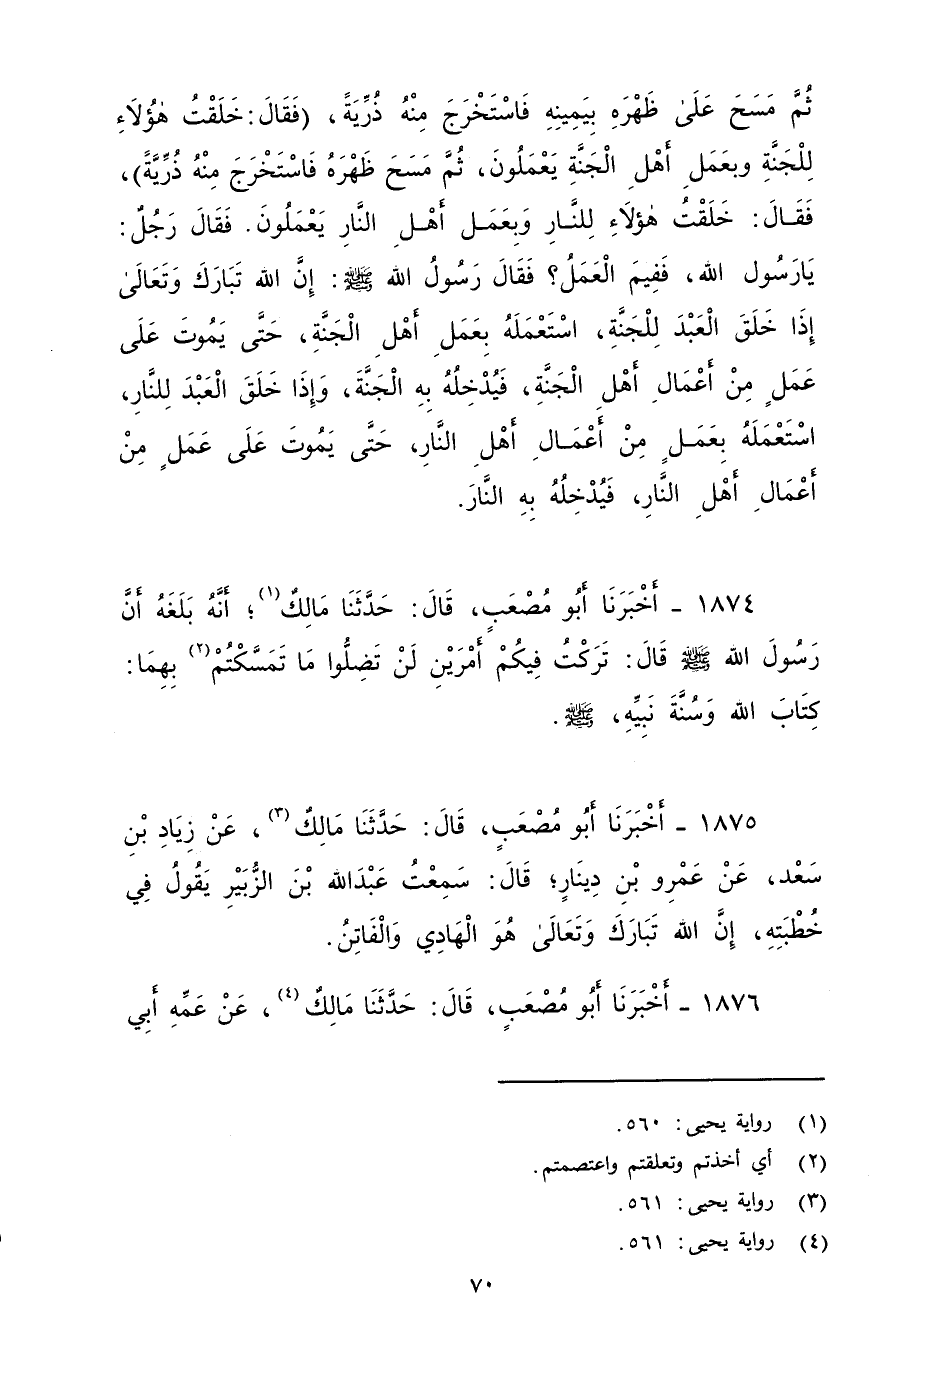 ثُمَّ مَسَحَ عَلَىٰ ظَهْرَهِ بِيَمِينِهِ فَاسْتَخْرَجَ مِنْهُ ذُرِّيَةً، (فَقَالَ: خَلَقْتُ هٰؤُلَاءِ
لِلْجَنَّةِ وبعَمَلِ أَهْلِ الْجَنَّةِ يَعْمَلُونَ، ثُمَّ مَسَحَ ظَهْرَهُ فَاسْتَخْرَجَ مِنْهُ ذُرِّيَّةً)،
فَقَالَ: خَلَقْتُ هٰؤلَاءِ لِلنَّارِ وَبِعَمَلِ أَهْلِ النَّارِ يَعْمَلُونَ. فَقَالَ رَجُلٌ:
يَارَسُولِ الله، فَفِيمَ الْعَمَلُ؟ فَقَالَ رَسُولُ الله ﷺ: إِنَّ الله تَبَارَكَ وَتَعَالَىٰ
إِذَا خَلَقَ الْعَبْدَ لِلْجَنَّةِ، اسْتَعْمَلَهُ بِعَمَلِ أَهْلِ الْجَنَّةِ، حَتَّى يَمُوتَ عَلَى
عَمَلٍ مِنْ أَعْمَالِ أَهْلِ الْجَنَّةِ، فَيُدْخِلُهُ بِهِ الْجَنَّةَ، وَإِذَا خَلَقَ الْعَبْدَ لِلنَّارِ،
اسْتَعْمَلَهُ بِعَمَلٍ مِنْ أَعْمَالِ أَهْلِ النَّارِ، حَتَّى يَمُوتَ عَلَى عَمَلٍ مِنْ
أَعْمَالِ أَهْلِ النَّارِ، فَيُدْخِلُهُ بِهِ النَّارَ.
١٨٧٤ - أَخْبَرَنَا أَبُو مُصْعَبٍ، قَالَ: حَدَّثَنَا مَالِكٌ(١)؛ أَنَّهُ بَلَغَهُ أَنَّ
رَسُولَ الله ﷺ قَالَ: تَرَكْتُ فِيكُمْ أَمْرَيْنِ لَنْ تَضِلُّوا مَا تَمَسَّكْتُمْ(٢) بِهِمَا:
كِتَابَ الله وَسُنَّةَ نَبِيِّهِ، ﷺ.
١٨٧٥ - أَخْبَرَنَا أَبُو مُصْعَبٍ، قَالَ: حَدَّثَنَا مَالِكٌ(٣)، عَنْ زِيَادِ بْنِ
سَعْد، عَنْ عَمْرِو بْنِ دِينَارٍ؛ قَالَ: سَمِعْتُ عَبْدَالله بْنَ الزُّبَيْرِ يَقُولُ فِي
خُطْبَتِهِ، إِنَّ الله تَبَارَكَ وَتَعَالَىٰ هُوَ الْهَادِي وَالْفَاتِنُ.
١٨٧٦ - أَخْبَرَنَا أَبُو مُصْعَبٍ، قَالَ: حَدَّثَنَا مَالِكٌ(٤)، عَنْ عَمِّهِ أَبِي
(١) رواية يحيى: ٥٦٠.
(٢) أي أخذتم وتعلقتم واعتصمتم.
(٣) رواية يحيى: ٥٦١.
(٤) رواية يحيى: ٥٦١.
٧٠